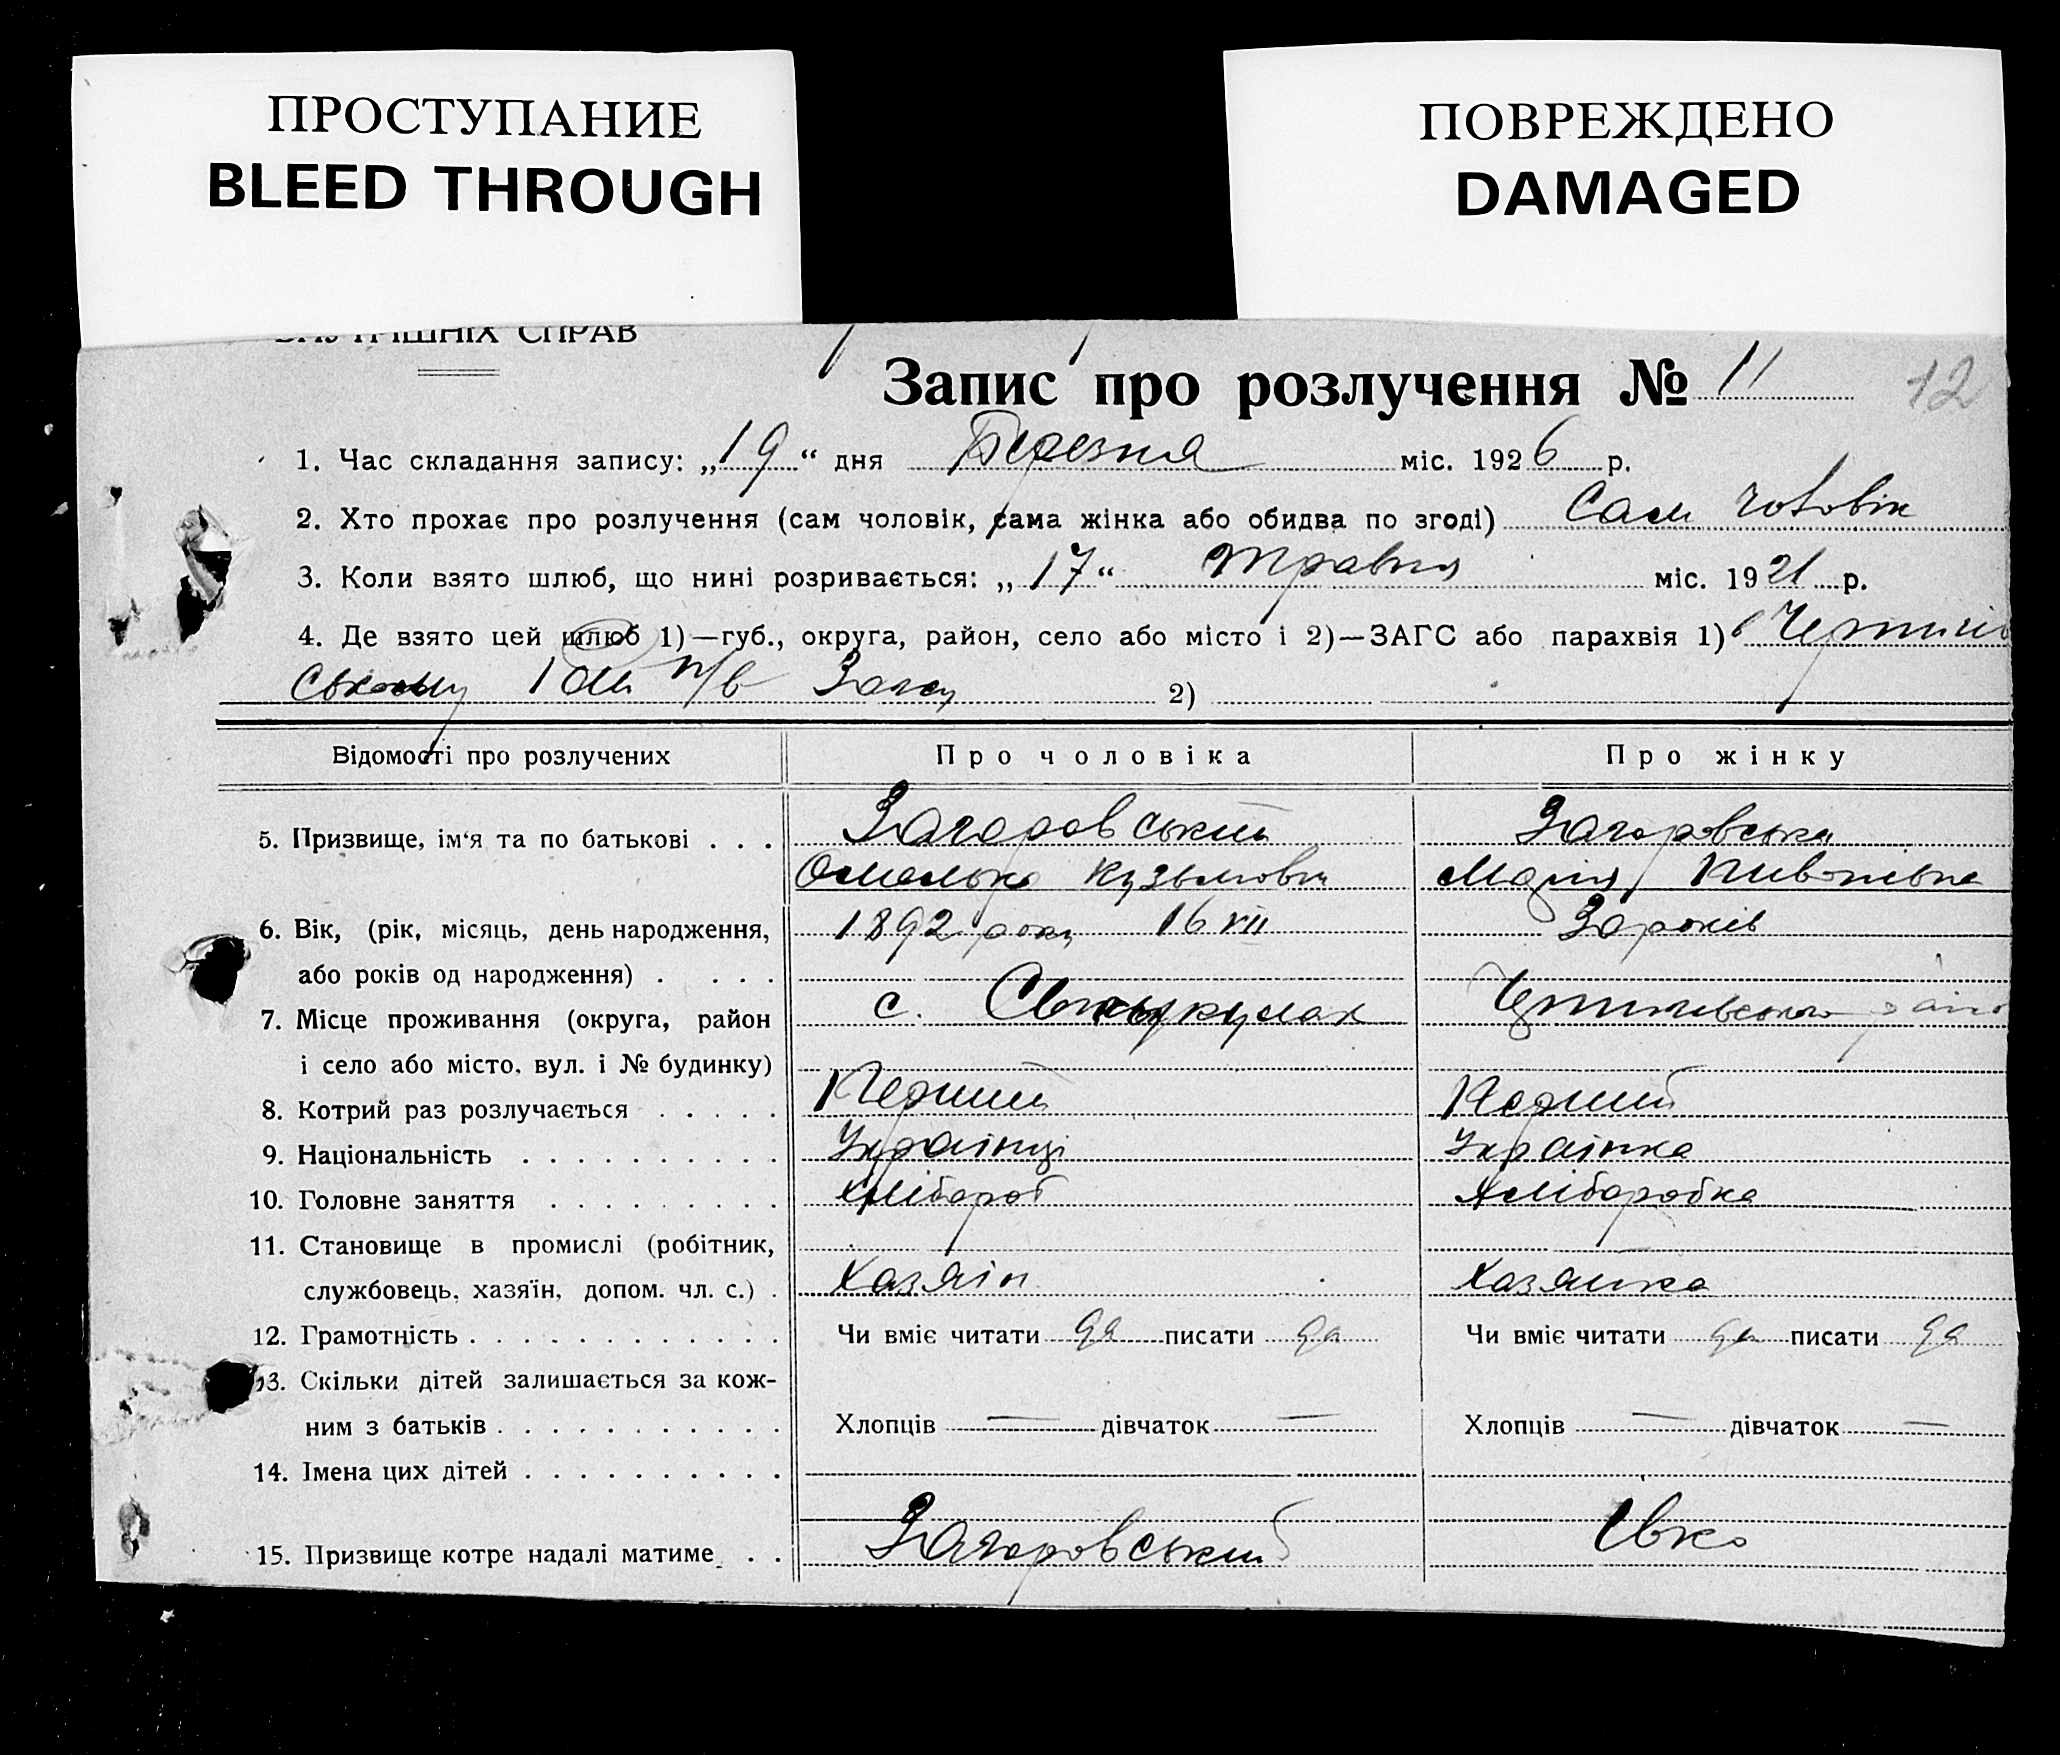 ПРОСТУПАНИЕ
BLEED THROUGH
ПОВРЕЖДЕНО
DAMAGED
ВНУТРІШНІХ СПРАВ
Запис про розлучення № 11
12
1. Час складання запису: „19“ дня Березня міс. 1926 р.
2. Хто прохає про розлучення (сам чоловік, сама жінка або обидва по згоді) Сам чоловік
3. Коли взято шлюб, що нині розривається: „17“ травня міс. 1921 р.
4. Де взято цей шлюб 1)—губ., округа, район, село або місто і 2)—ЗАГС або парахвія 1) в
ському 2)
Відомості про розлучених Про чоловіка Про жінку
5. Призвище, ім‘я та по батькові . . . Загоровський Загоровська
Омелько Кузьмович Марія
6. Вік, (рік, місяць, день народження, 1892 року 16 VII 30 років
або років од народження) . . . .
7. Місце проживання (округа, район с.
і село або місто, вул. і № будинку)
8. Котрий раз розлучається . . . . . Перший Перший
9. Національність . . . . . . . . . . Українці Українка
10. Головне заняття . . . . . . . . . Хлібороб Хліборобка
11. Становище в промислі (робітник,
службовець, хазяїн, допом. чл. с.) . Хазяін Хазяйка
12. Грамотність . . . . . . . . . . . . Чи вміє читати да писати да Чи вміє читати да писати да
13. Скільки дітей залишається за кож-
ним з батьків . . . . . . . . . . . Хлопців — дівчаток — Хлопців — дівчаток —
14. Імена цих дітей . . . . . . . . . .
15. Призвище котре надалі матиме . . Загоровський